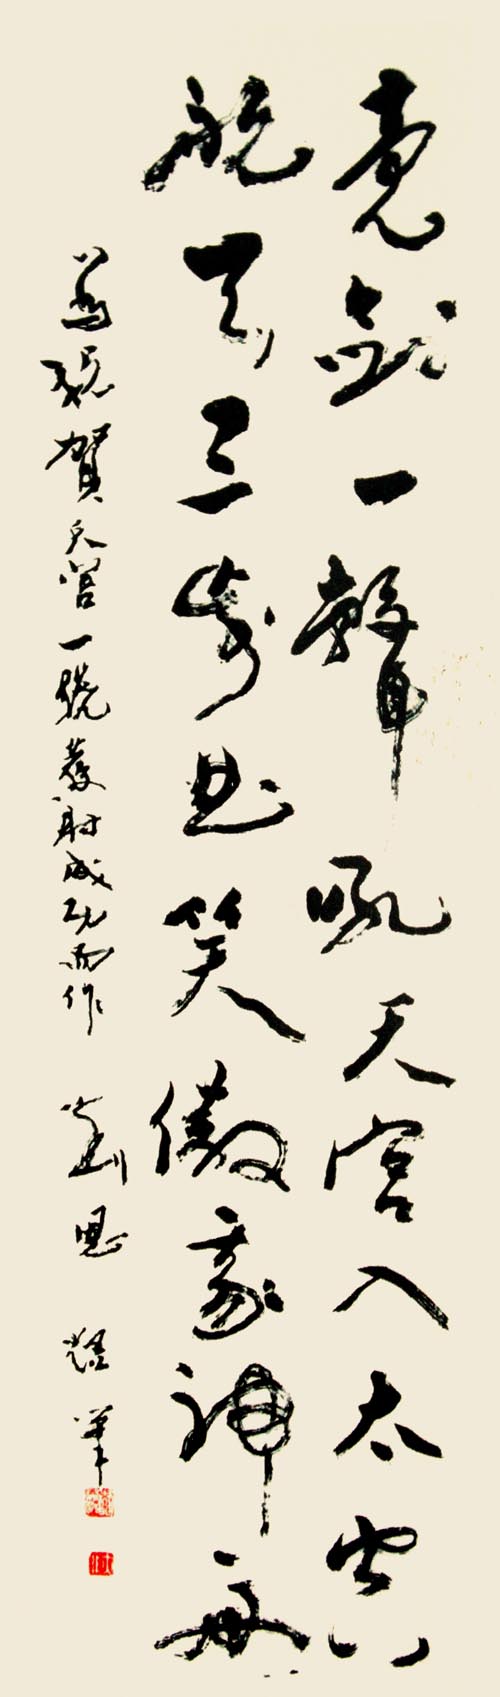 亮剑一聲吼天宫入太空
航天三步曲笑傲神舟
為祝賀天宫一號發射成功而作 劉恩 筆